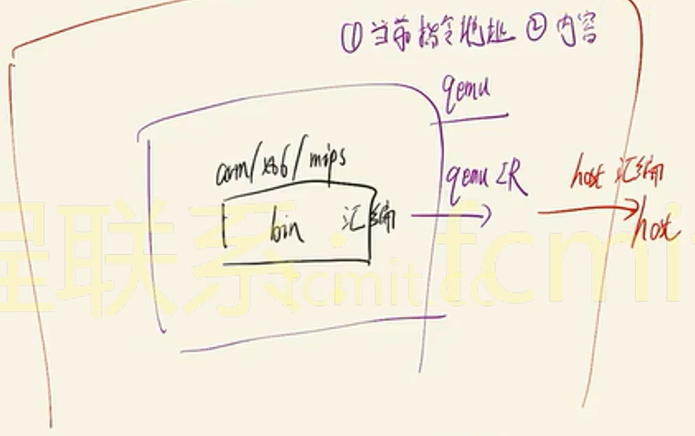 ① 当前指令地址 ② 内容
qemu
arm/x86/mips
qemu IR
host 汇编
bin 汇编
host
程联系：fcmit
fcmit.cc